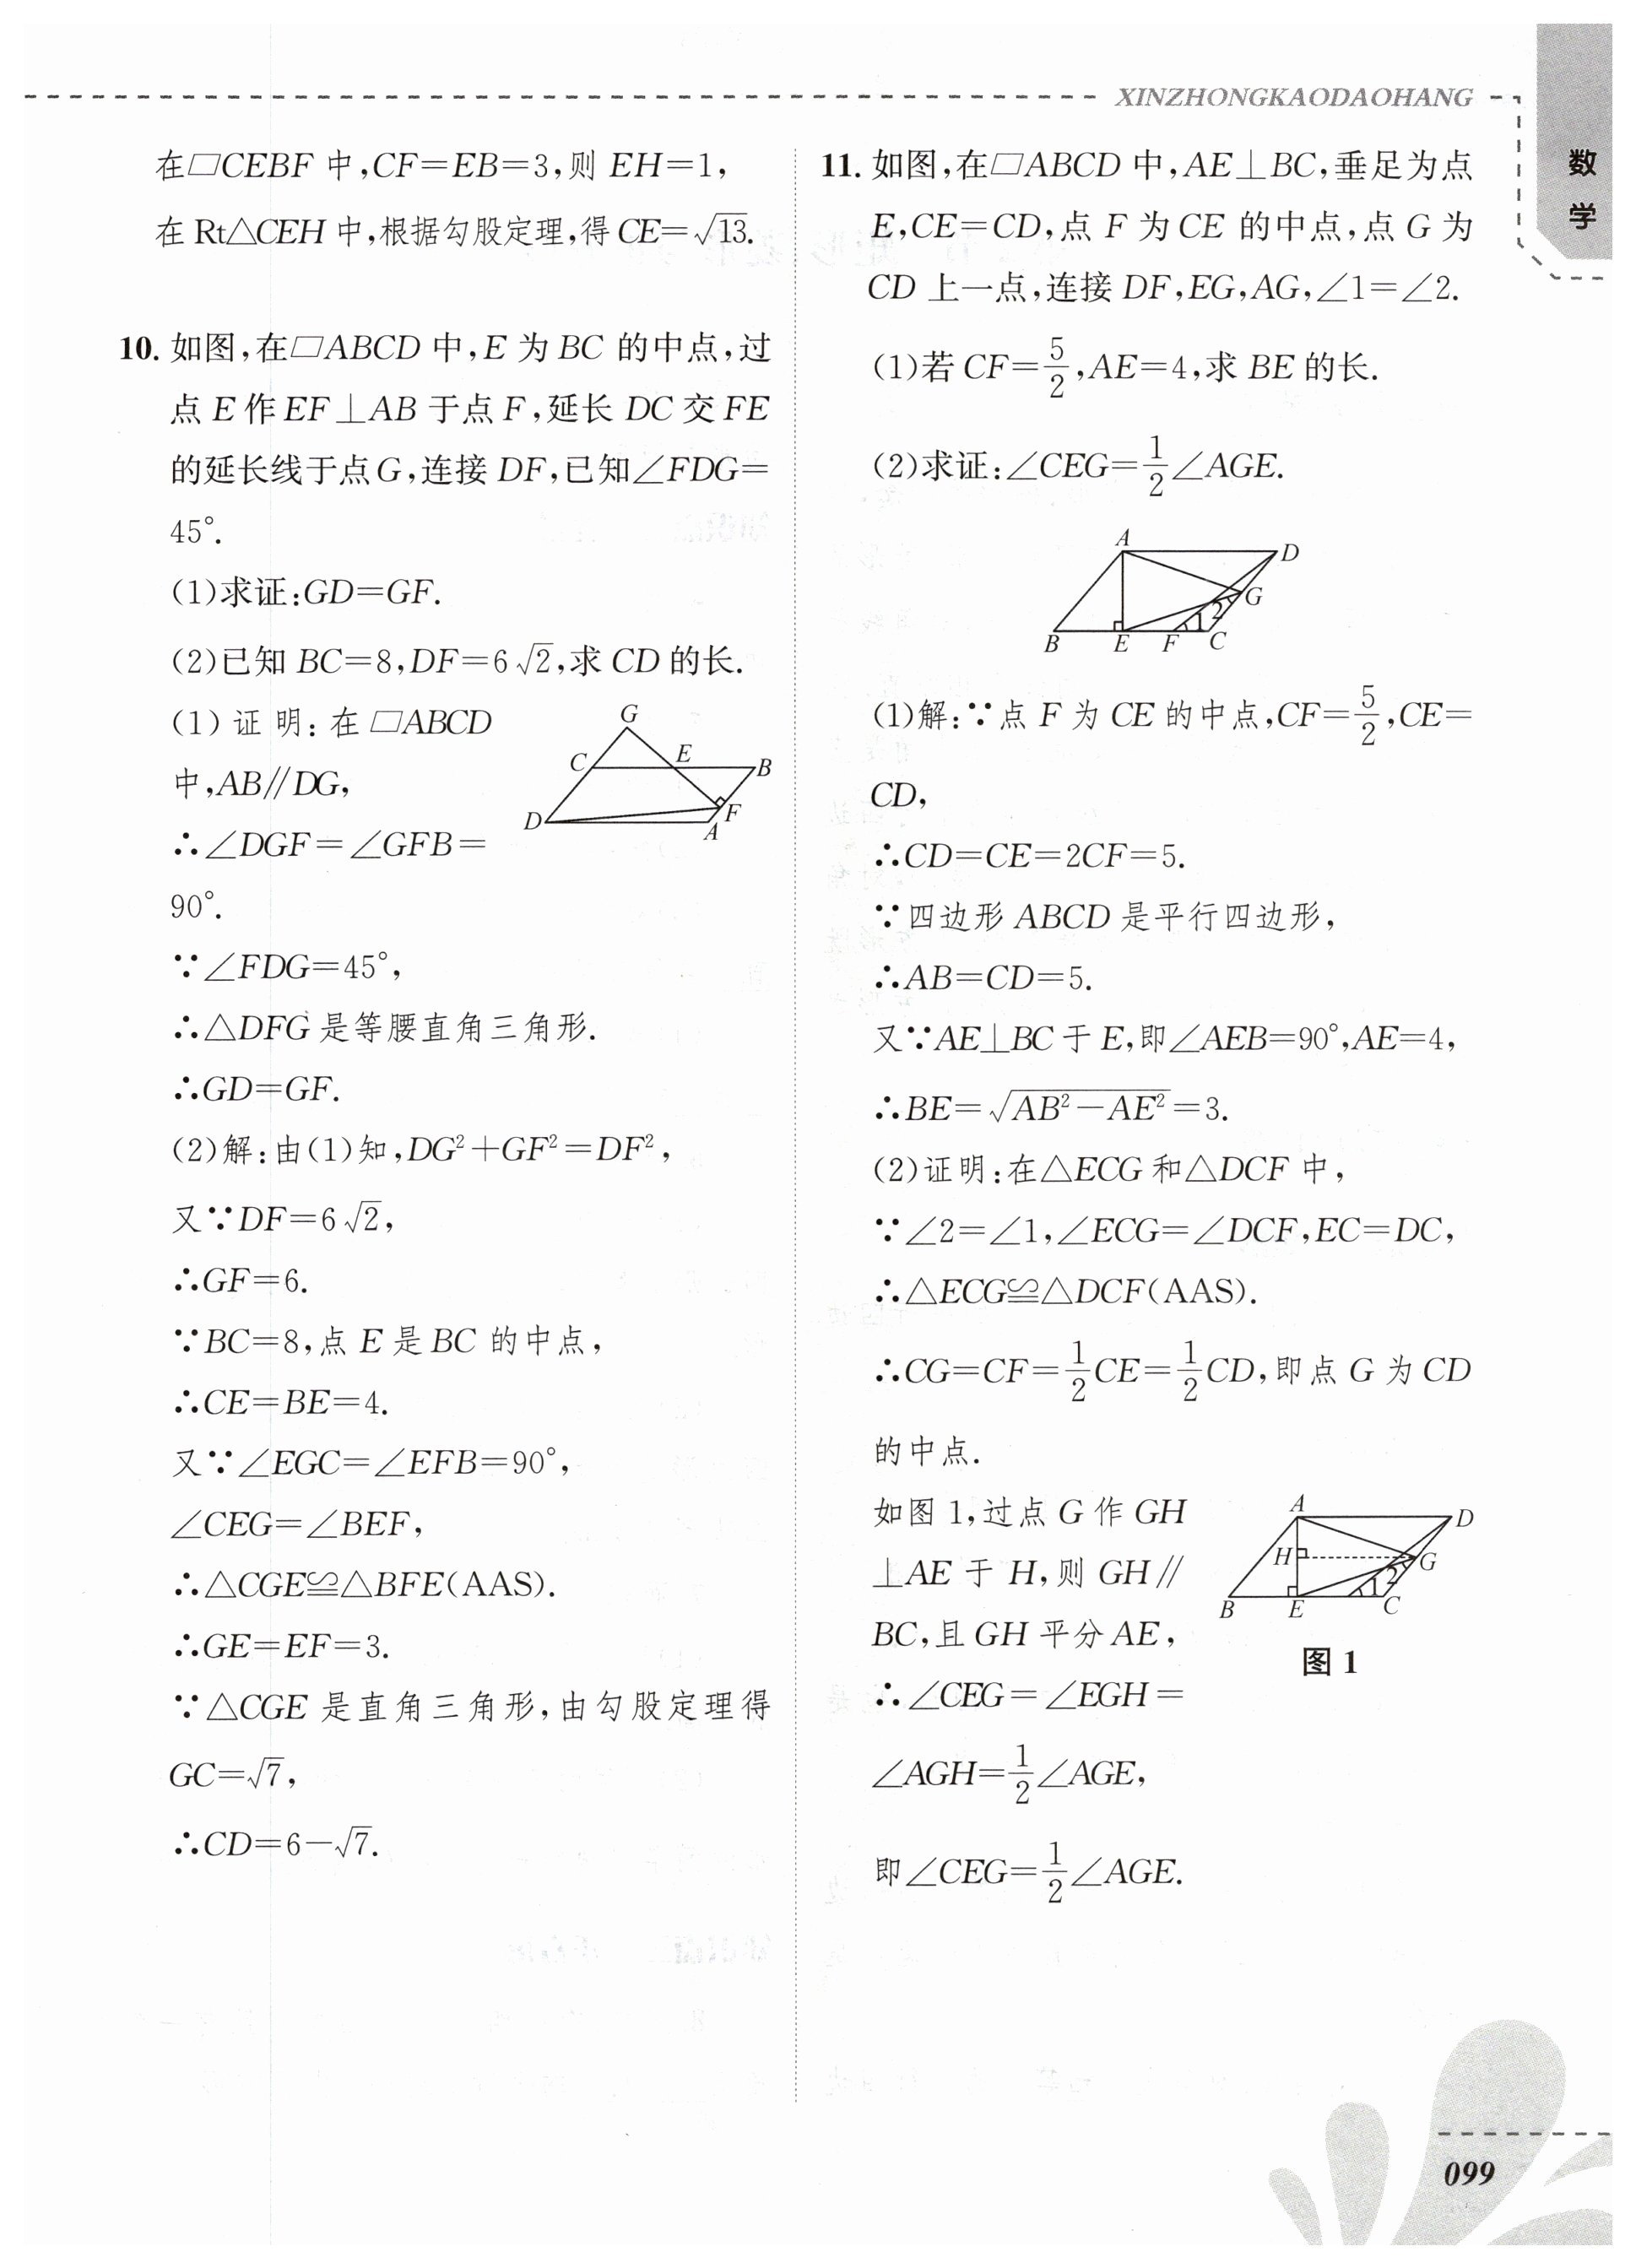 XINZHONGKAODAOHANG
数
学
在▱CEBF 中,CF=EB=3,则 EH=1,
在 Rt△CEH 中,根据勾股定理,得 CE=√13.
10. 如图,在▱ABCD 中,E 为 BC 的中点,过
点 E 作 EF⊥AB 于点 F,延长 DC 交 FE
的延长线于点 G,连接 DF,已知∠FDG=
45°.
(1)求证:GD=GF.
(2)已知 BC=8,DF=6√2,求 CD 的长.
(1) 证 明: 在 ▱ABCD
中,AB∥DG,
∴∠DGF=∠GFB=
90°.
G
C
E
B
D
F
A
∵∠FDG=45°,
∴△DFG 是等腰直角三角形.
∴GD=GF.
(2)解:由(1)知,DG²+GF²=DF²,
又∵DF=6√2,
∴GF=6.
∵BC=8,点 E 是 BC 的中点,
∴CE=BE=4.
又∵∠EGC=∠EFB=90°,
∠CEG=∠BEF,
∴△CGE≌△BFE(AAS).
∴GE=EF=3.
∵△CGE 是直角三角形,由勾股定理得
GC=√7,
∴CD=6-√7.
11. 如图,在▱ABCD 中,AE⊥BC,垂足为点
E,CE=CD,点 F 为 CE 的中点,点 G 为
CD 上一点,连接 DF,EG,AG,∠1=∠2.
(1)若 CF=5/2,AE=4,求 BE 的长.
(2)求证:∠CEG=1/2∠AGE.
A
D
G
2
1
B
E
F
C
(1)解:∵点 F 为 CE 的中点,CF=5/2,CE=
CD,
∴CD=CE=2CF=5.
∵四边形 ABCD 是平行四边形,
∴AB=CD=5.
又∵AE⊥BC 于 E,即∠AEB=90°,AE=4,
∴BE=√(AB²-AE²)=3.
(2)证明:在△ECG 和△DCF 中,
∵∠2=∠1,∠ECG=∠DCF,EC=DC,
∴△ECG≌△DCF(AAS).
∴CG=CF=1/2CE=1/2CD,即点 G 为 CD
的中点.
如图 1,过点 G 作 GH
⊥AE 于 H,则 GH∥
BC,且 GH 平分 AE,
∴∠CEG=∠EGH=
∠AGH=1/2∠AGE,
即∠CEG=1/2∠AGE.
A
D
H
G
2
1
B
E
C
图 1
099